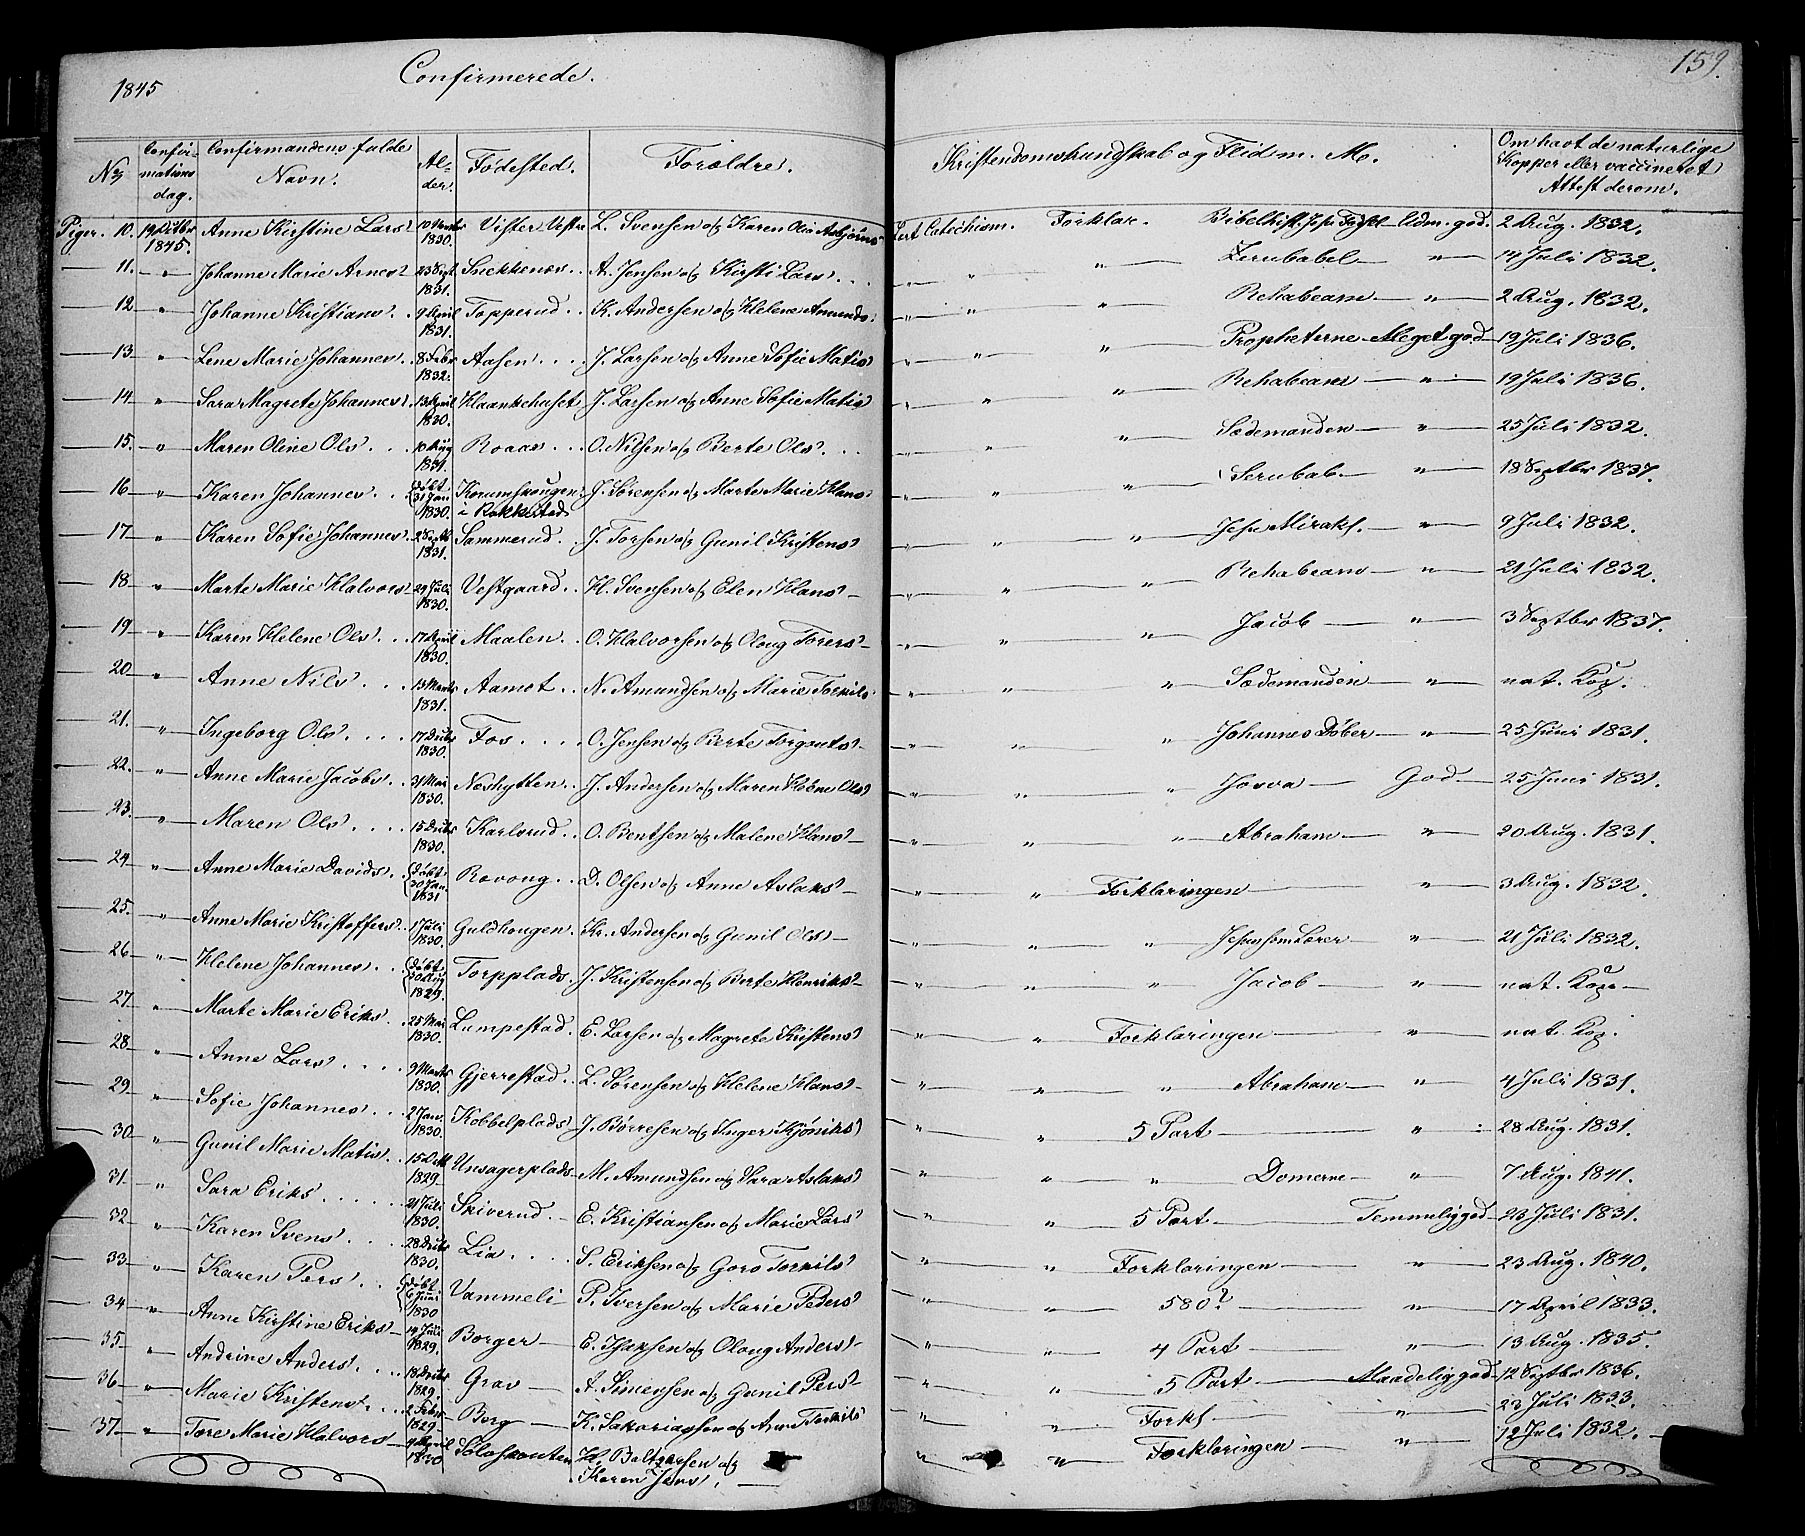 1845
Confirmerede.
159.
No
Confirmations dag.
Confirmandens fulde Navn.
Alder.
Fødested.
Forældre.
Kristendomskundskab og Flid m. M.
Om havt de naturlige Kopper eller vaccineret Attest derom.
Piger. 10. 19 Octbr 1845. Anne Kirstine Lars 1830. Vister Vestre L. Svensen og Karen Oline Asbjørns Lært Catechism. Forklar. Bibelhist. Udm. god. 2 Aug. 1832.
11. " Johanne Marie Arnes 23 Sept. 1831. Snekkenæs A. Jensen og Kirsti Lars " " " Zerubabel " 14 Juli 1832.
12. " Johanne Kristians 9 April 1831. Topperud K. Andersen og Helene Amunds " " " Rehabeam " 2 Aug. 1832.
13. " Lene Marie Johannes 8 Febr 1832. Aasen J. Larsen og Anne Sofie Matis " " " Propheterne Meget god 19 Juli 1836.
14. " Sara Magrete Johannes 13 April 1830. J. Larsen og Anne Sofie Matis " " " Rehabeam " 19 Juli 1836.
15. " Maren Oline Ols 10 Aug 1831. Roaas O. Nilsen og Berte Ols " " " Sædemanden " 25 Juli 1832.
16. " Karen Johannes Døbt 31 Jan 1830. Knumskougen i Rakkestad J. Sørensen og Marte Marie Hans " " " Serubab. " 18 Septbr 1837.
17. " Karen Sofie Johannes 2 Septbr 1831. Sammerud J. Torsen og Gunil Kristens " " " Jesu Mirakl. " 9 Juli 1832.
18. " Marte Marie Halvors 29 Juli 1830. Vestgaard H. Svensen og Elen Hans " " " Rehabeam " 21 Juli 1832.
19. " Karen Helene Ols 17 April 1830. Maalen O. Halvorsen og Oloug Torers " " " Jacob " 3 Septbr 1837.
20. " Anne Nils 13 Marts 1831. Aamot N. Amundsen og Marie Torkils " " " Sædemanden " nat. Kop.
21. " Ingeborg Ols 17 Decbr 1830. Fos O. Jensen og Berte Torgauts " " " Johannes Døber " 25 Juni 1831.
22. " Anne Marie Jacobs 31 Mai 1830. Neshytten J. Andersen og Maren Helene Ols " " " Josva God 25 Juni 1831.
23. " Maren Ols 15 Decbr 1830. Karlsrud O. Bentsen og Malene Hans " " " Abraham " 20 Aug. 1831.
24. " Anne Marie Davids Døbt 30 Jan. 1831 Rovoug D. Olsen og Anne Aslaks " " Forklaringen " 3 Aug. 1832.
25. " Anne Marie Kristoffers 1 Juli 1830. Guldhougen Kr. Andersen og Gunil Ols " " " Jesus som Lærer " 21 Juli 1832.
26. " Helene Johannes Døbt 30 Aug 1829. Torpplads J. Kristensen og Berte Henriks " " " Jacob " nat. Kop.
27. " Marte Marie Eriks 25 Mai 1830. Lumpestad E. Larsen og Magrete Kristens " " Forklaringen " nat. Kop.
28. " Anne Lars 9 Marts 1830. Gjerrestad L. Sørensen og Helene Hans " " " Abraham " 4 Juli 1831.
29. " Sofie Johannes 2 Jan. 1830. Kobbelplads J. Børresen og Inger Kjøniks " " 5 Part " 28 Aug. 1831.
30. " Gunil Marie Matis 15 Oct 1829. Unsagerplads M. Amundsen og Sara Aslaks " " " Domerne " 7 Aug. 1841.
31. " Sara Eriks 21 Juli 1830. Skiverud E. Kristiansen og Marie Lars " " 5 Part Temmelig god 23 Juli 1831.
32. " Karen Svens 28 Decbr 1830. Lia S. Eriksen og Goro Torkils " " Forklaringen " 23 Aug. 1840.
33. " Karen Pers Døbt 6 Juni 1830 Vammeli P. Iversen og Marie Peders " " 580? " 17 April 1833.
34. " Anne Kirstine Eriks 14 Juli 1829. Borger E. Isaksen og Oloug Anders " " 4 Part " 13 Aug. 1835.
35. " Andrine Anders 18 Decbr 1829. Grav A. Simensen og Gunil Pers " " 5 Part Maadelig god 12 Septbr 1836.
36. " Marie Kristens 2 Febr 1829 Borg K. Sakariassen og Anne Torkils " " Forkl. " 23 Juli 1833.
37. " Tore Marie Halvors 4 April 1830 H. Baltzersen og Karen Jens. " " Forklaringen " 12 Juli 1832.